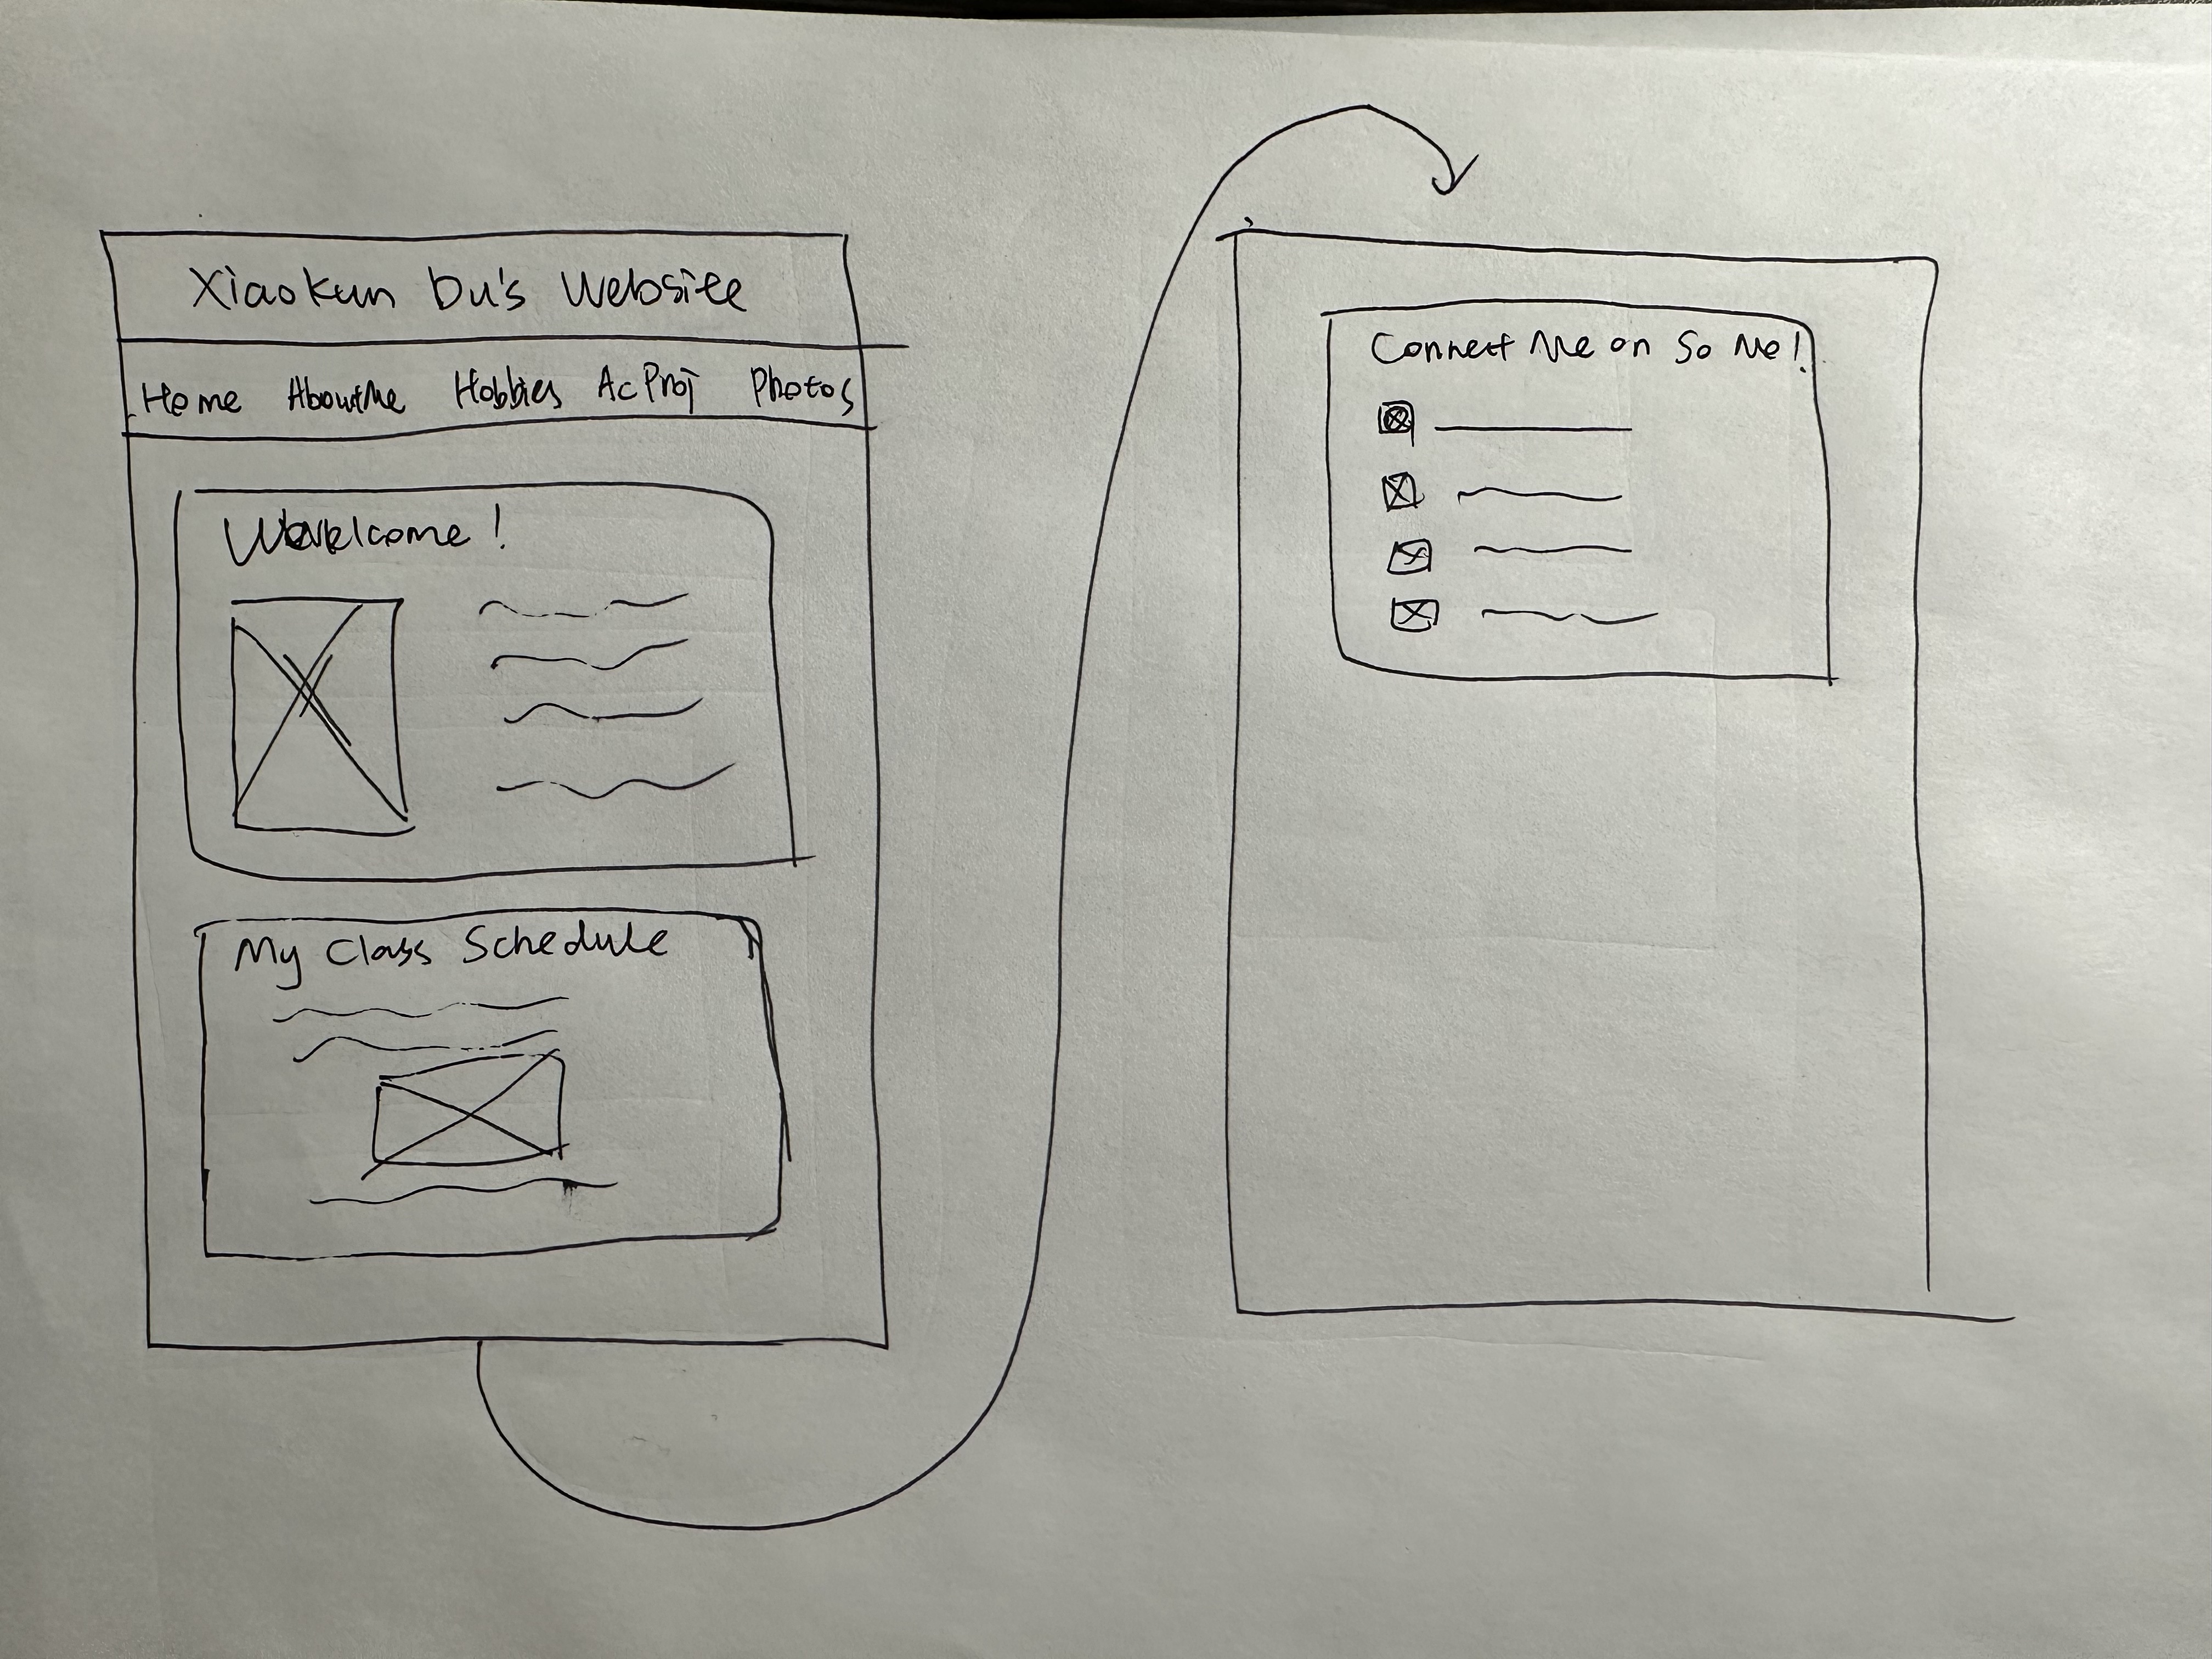 Xiaokun Du's Website
Home AboutMe Hobbies AcProj Photos
Welcome!
My Class Schedule
Connect Me on So Me!